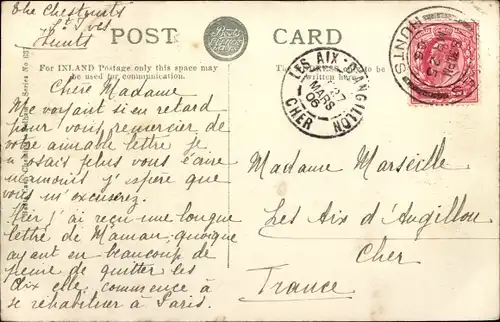 The Chestnuts
St Ives
Hunts
POST CARD
For INLAND Postage only this space may
be used for communication.
written here.
LES AIX-D'ANGILLON
27
MARS
06
CHER
HUNTS
Chère Madame
Me voyant si en retard
pour vous remercier de
votre aimable lettre je
n'osais plus vous écrire
néanmoins j'espère que
vous m'excuserez.
Hier j'ai reçu une longue
lettre de Maman, quoique
ayant eu beaucoup de
peine de quitter les
Aix elle commence à
se réhabituer à Paris.
Madame Marseille
Les Aix d'Angillon
Cher
France